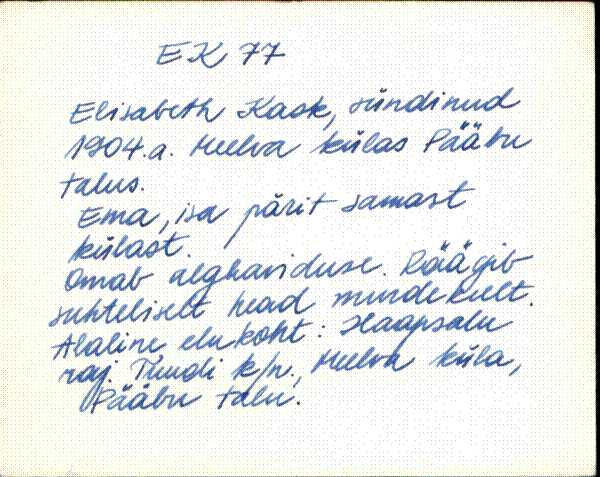 EK 77
Elisabeth Kask, sündinud
1904.a. Meelva külas Pääbu
talus.
Ema, isa pärit samast
külast.
Omab algharidust. Räägib
suhteliselt head murdekeelt.
Alaline elukoht: Haapsalu
raj. Tuudi k/n., Meelva küla,
Pääbu talu.